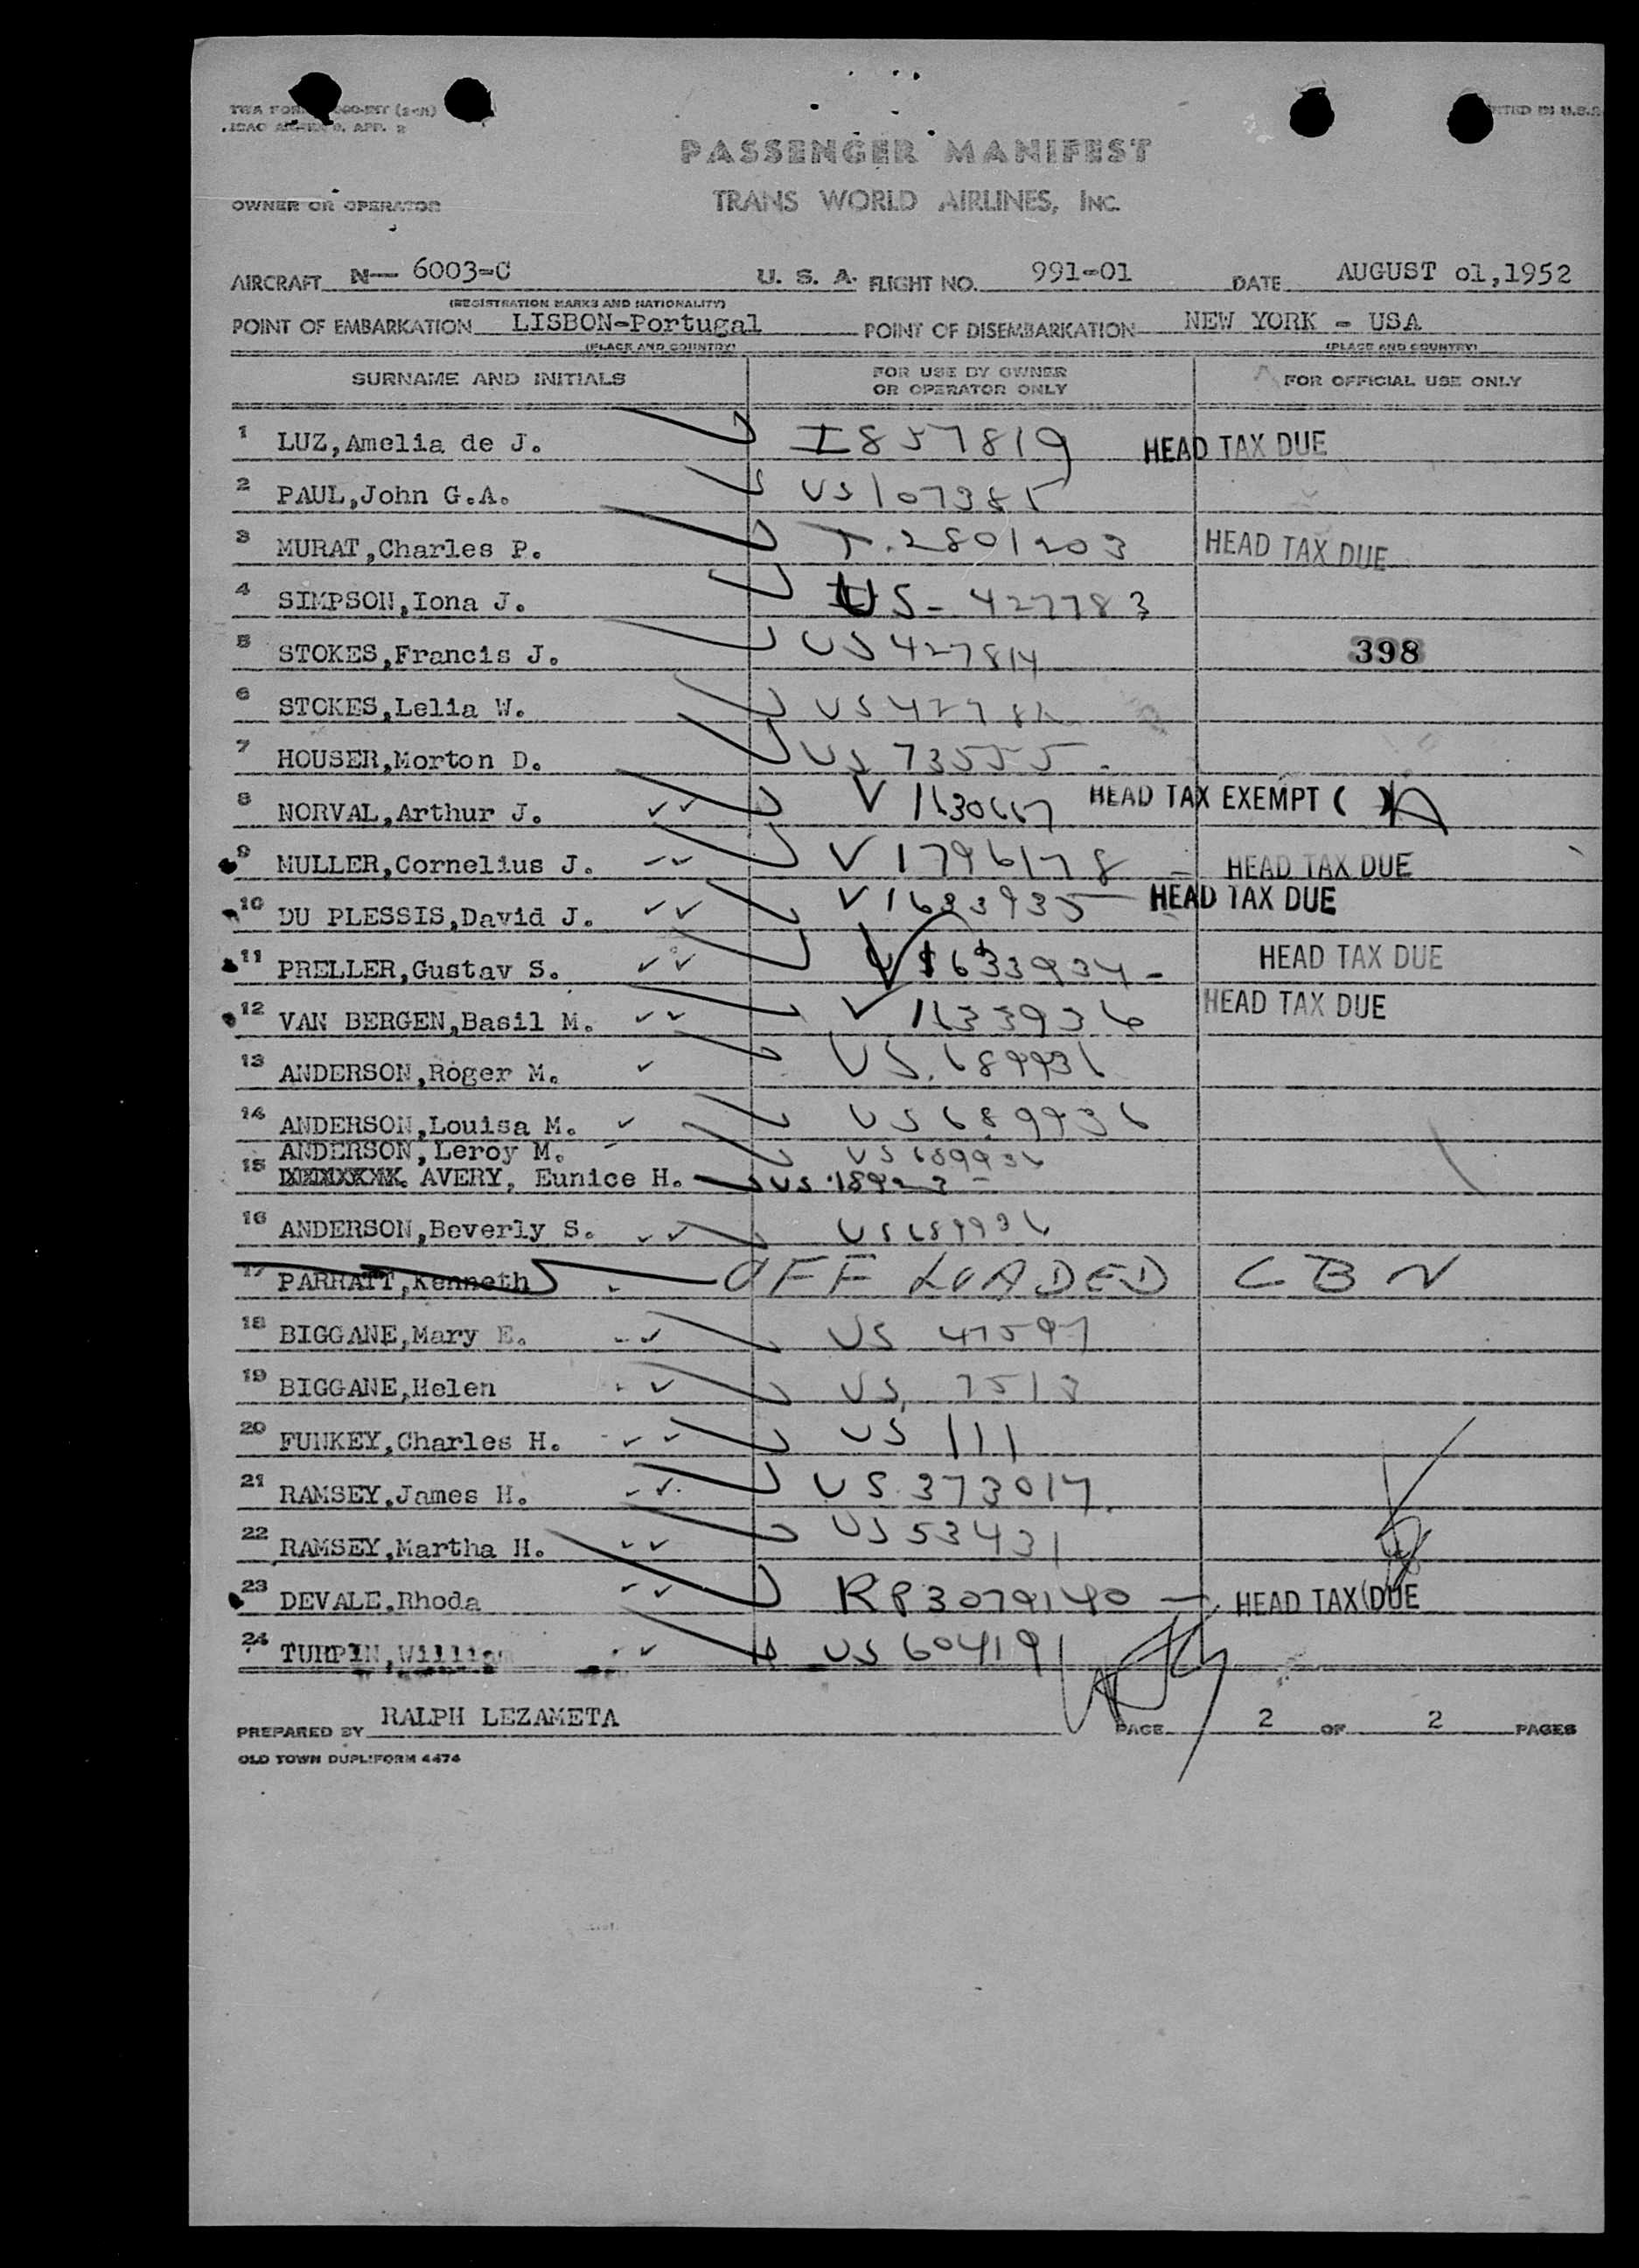 PASSENGER MANIFEST
TRANS WORLD AIRLINES, INC.
OWNER OR OPERATOR
AIRCRAFT N— 6003-C U. S. A. FLIGHT NO. 991-01 DATE AUGUST 01,1952
(REGISTRATION MARKS AND NATIONALITY)
POINT OF EMBARKATION LISBON-Portugal POINT OF DISEMBARKATION NEW YORK - USA
(PLACE AND COUNTRY) (PLACE AND COUNTRY)
SURNAME AND INITIALS FOR USE BY OWNER OR OPERATOR ONLY FOR OFFICIAL USE ONLY
1 LUZ,Amelia de J. I857819 HEAD TAX DUE
2 PAUL,John G.A. US107385
3 MURAT,Charles P. T.2801203 HEAD TAX DUE
4 SIMPSON,Iona J. US-427783
5 STOKES,Francis J. US427814 398
6 STOKES,Lelia W.
7 HOUSER,Morton D. US 73555
8 NORVAL,Arthur J. V 1630667 HEAD TAX EXEMPT ( )
9 MULLER,Cornelius J. V 1796178 - HEAD TAX DUE
10 DU PLESSIS,David J. V1633935 HEAD TAX DUE
11 PRELLER,Gustav S. V1633934- HEAD TAX DUE
12 VAN BERGEN,Basil M. V 1633936 HEAD TAX DUE
13 ANDERSON,Roger M. US.689936
14 ANDERSON,Louisa M. US689936
ANDERSON,Leroy M. US689936
15 AVERY, Eunice H. US 18923 -
16 ANDERSON,Beverly S. US689936
17 PARRATT,Kenneth OFF LOADED CBN
18 BIGGANE,Mary E. US 47597
19 BIGGANE,Helen US 7513
20 FUNKEY,Charles H. US 111
21 RAMSEY,James H. US.373017.
22 RAMSEY,Martha H. US53431
23 DEVALE,Rhoda RP3079140 - HEAD TAX DUE
24 TURPIN,William US 604191
PREPARED BY RALPH LEZAMETA PAGE 2 OF 2 PAGES
OLD TOWN DUPLIFORM 4474